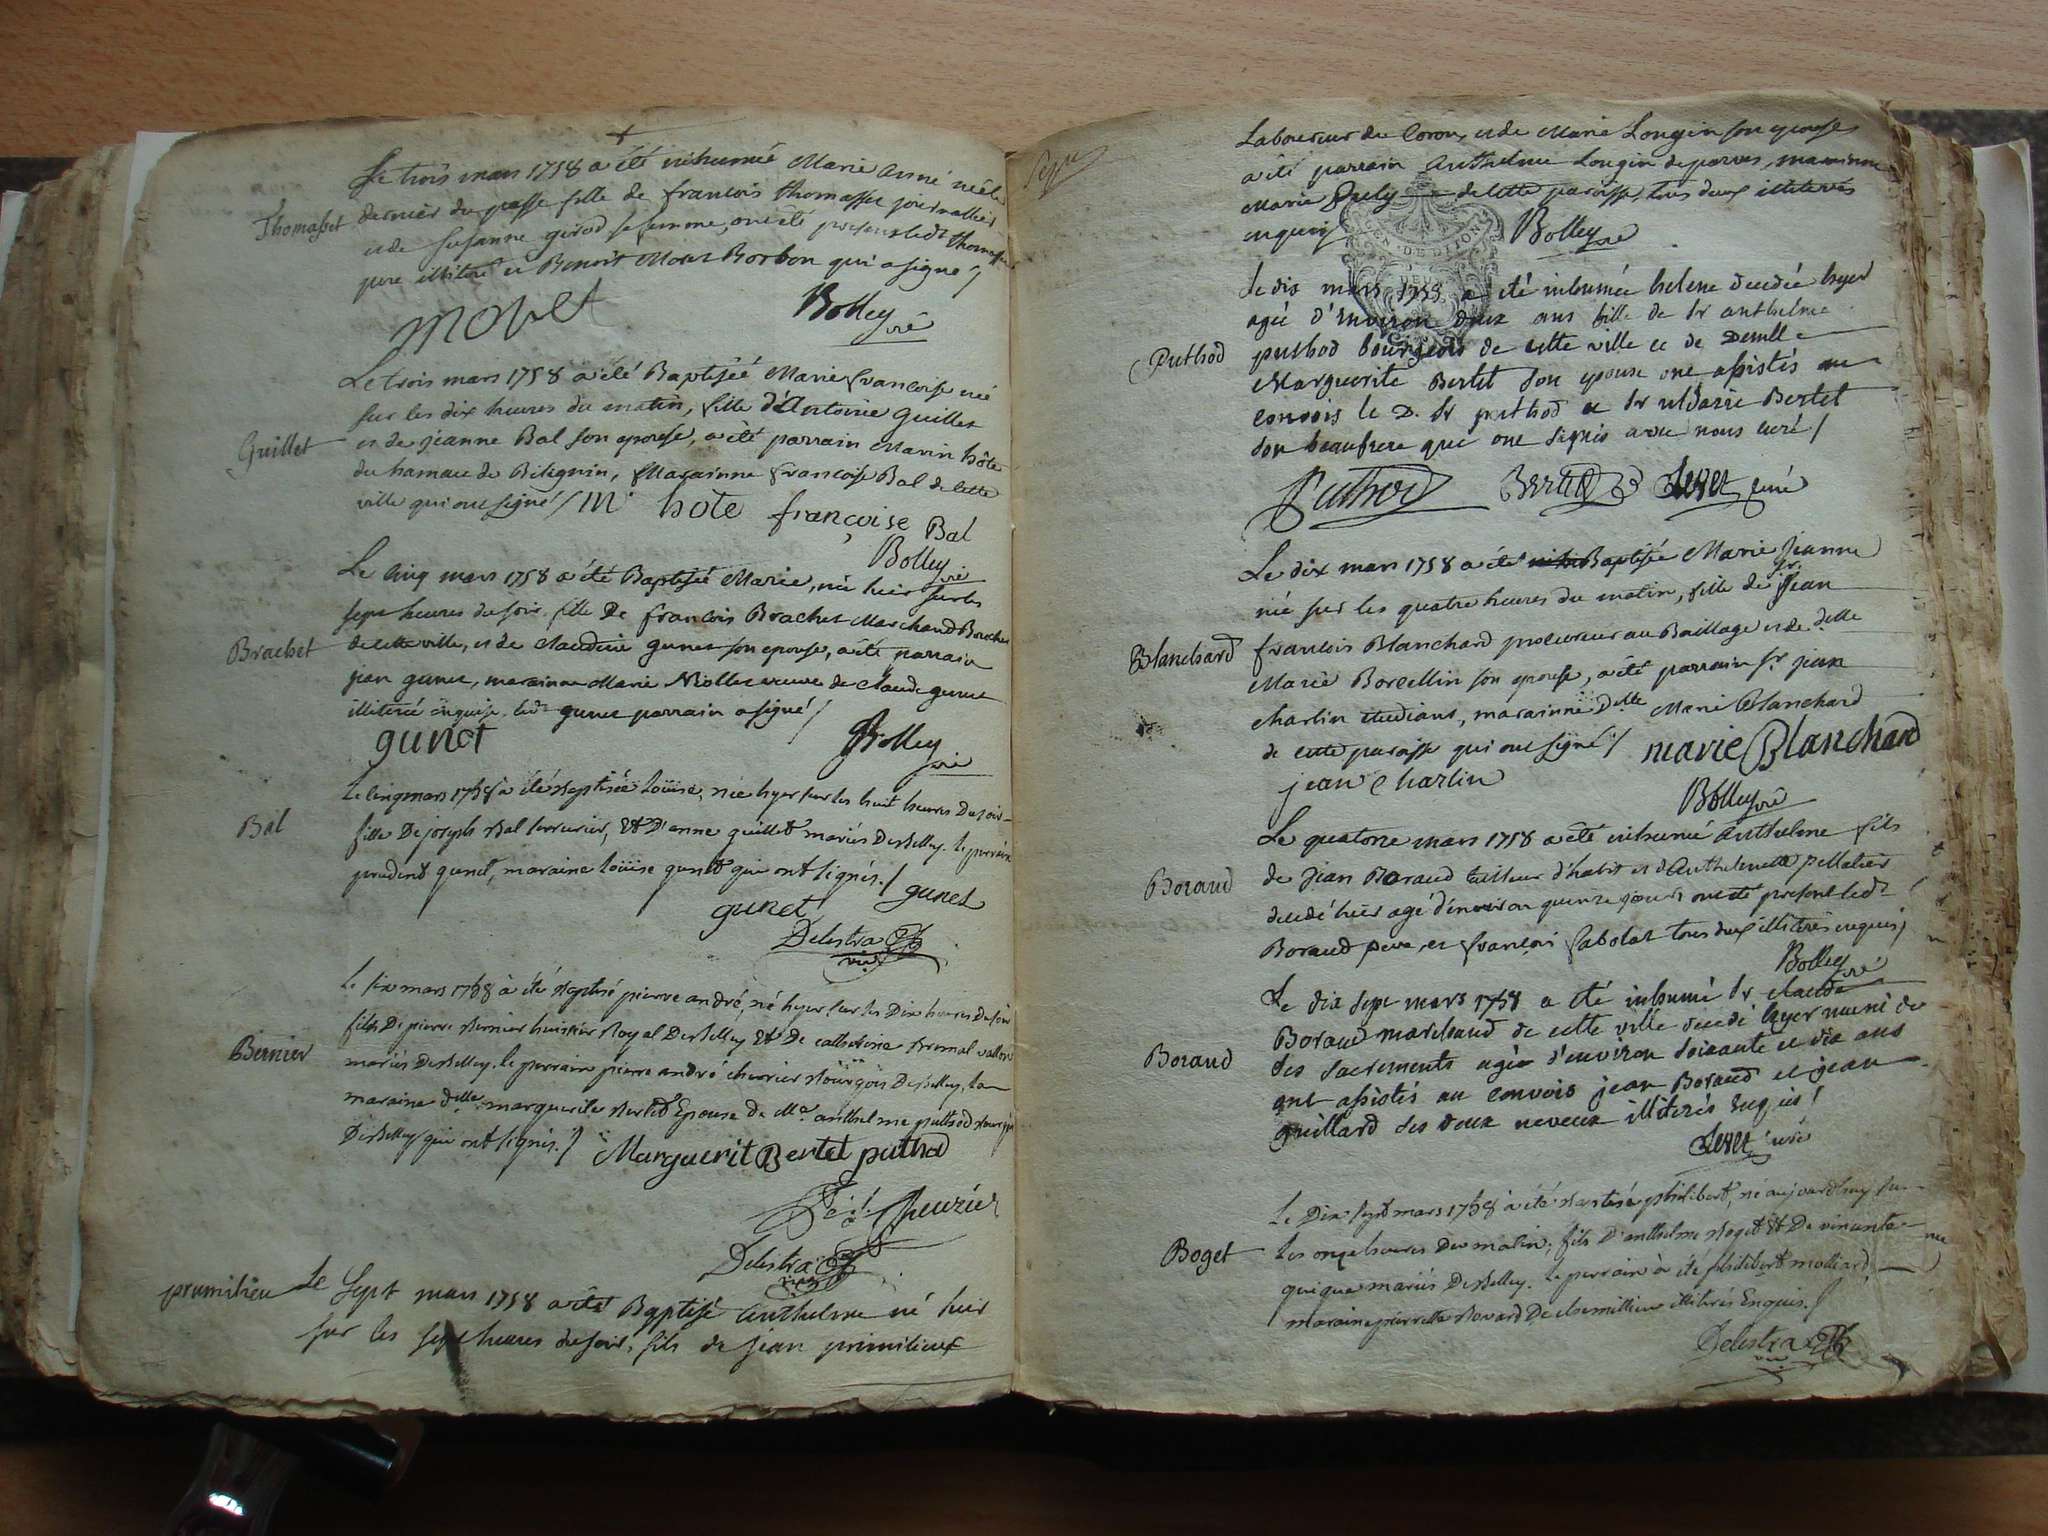 Thomasset
Le trois mars 1758 a été inhumée Marie Anne née le
dernier du passé fille de françois thomasset journallier
et de Susanne girod sa femme, ont été present led.t thomasset
pere illitéré et Benoit Moret Borbon qui a signé /
moret
Bolley
vic
Guillet
Le trois mars 1758 a été Baptisée Marie francoise née
sur les dix heures du matin, fille d'Antoine Guillet
et de jeanne Bal son epouse, a été parrain Marin hôte
du hamau de Bilignin, Marainne francoise Bal de cette
ville qui ont signé / M. hote françoise Bal
Bolley
vic
Brachet
Le cinq mars 1758 a été Baptisée Marie, née hier sur les
sept heures du soir fille De françois Brachet Marchand Boucher
de cette ville, et de claudine gunet son epouse, a été parrain
jean gunet, marainne Marie Niollet veuve de claude gunet
illiterée enquise. led.t gunet parrain a signé /
gunet
Bolley
vic
Bal
Le cinq mars 1758 à été Baptisée Loüise, née hyer sur les huit heures Du soir
fille De joseph Bal serrurier, Et D'anne guillet mariés De Belley. le parrain
prudent gunet, maraine Loüise gunet qui ont signés. /
gunet
gunet
Delestra
vic
Bernier
Le six mars 1758 à été Baptisé pierre andré, né hyer sur les Dix heures Du soir
fils De pierre Bernier huissier Royal De Belley Et De catherine
mariés De Belley. le parrain pierre andré cheurier Bourgois De Belley, la
maraine d.elle marguerite Bertet Epouse De M.e anthelme puthod Bourgois
De Belley qui ont signés. / Marguerit Bertet puthod
Cheurier
Delestra
vic
prumilieu
Le Sept mars 1758 a été Baptisé Anthelme né hier
sur les sept heures du soir, fils de jean primilieux
laboureur de Coron, et de Marie Longin son epouse
a été parrain Anthelme Longin de parves, marainne
Marie Puly de cette paroisse, tous deux illiterés
enquis /
Bolley
vic
GEN. DE DIJON
Puthod
Le dix mars 1758 a été inhumée helene decedée hyer
agée d'environ deux ans fille de Sr anthelme
puthod bourgeois de cette ville et de Demlle
Marguerite Bertet son epouse ont assistés au
convois le D. Sr puthod et Sr uldarie Bertet
son beaufrere qui ont signés avec nous curé /
Puthod
Bertet
Jevet curé
Blanchard
Le dix mars 1758 a été Baptisée Marie Jeanne
née sur les quatre heures du matin, fille de Sr. Jean
francois Blanchard procureur au Baillage et de delle
Marie Borcellin son epouse, a été parrain Sr jean
charlin etudiant, marainne Delle Marie Blanchard
de cette paroisse qui ont signé / marie Blanchard
jean charlin
Bolley
vic
Boraud
Le quatorze mars 1758 a été inhumé Anthelme fils
de jean Boraud tailleur d'habit et d'Anthelmette pellatier
decedé hier agé d'environ quinze jours ont été present led.t
Boraud pere, et françois Sabolat tous deux illiterés enquis /
Bolley
vic
Boraud
Le dix sept mars 1758 a été inhumé Sr claude
Boraud marchand de cette ville decedé hyer muni de
ses sacrements agée d'environ soixante et dix ans
ont assistés au convois jean Boraud et jean
guillard ses deux neveux illiterés enquis /
Jevet curé
Boget
Le Dix sept mars 1758 à été Baptisé philibert, né aujourdhuy sur
les onze heures Du matin, fils D'anthelme Boget Et De vincente
mariés De Belley. Le parrain à été philibert molliard
maraine pierrette Bovard De chemillieu illiterés Enquis. /
Delestra
vic